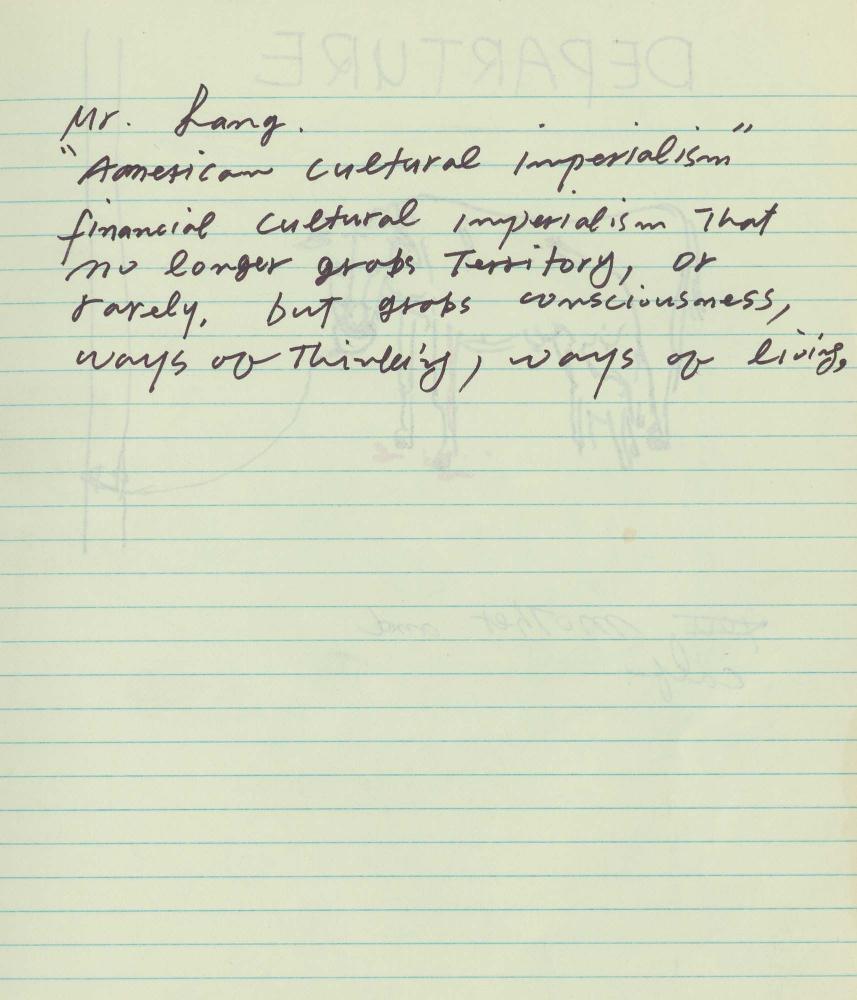 Mr. Lang.
"American cultural imperialism"
financial cultural imperialism That
no longer grabs Territory, or
rarely, but grabs consciousness,
ways of Thinking, ways of living,
DEPARTURE
mother and
calf